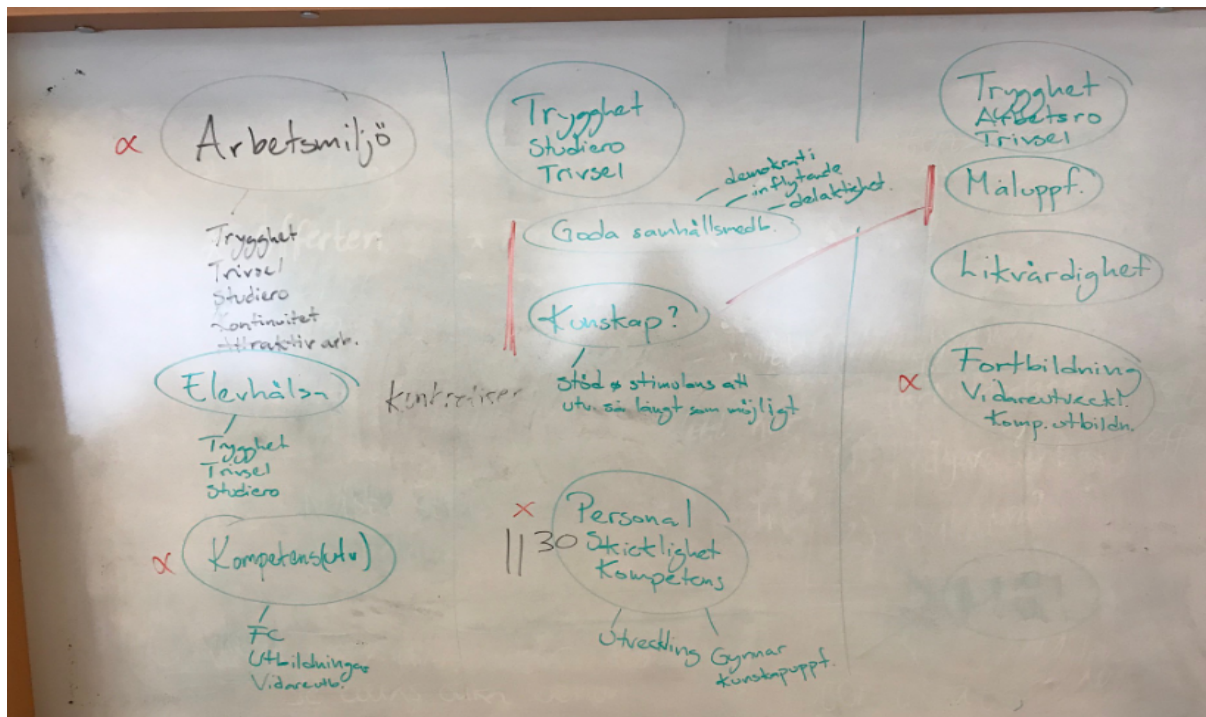 ∝ Arbetsmiljö
Trygghet
Trivsel
Studiero
Kontinuitet
Attraktiv arb.
Elevhälsa
Trygghet
Trivsel
Studiero
∝ Kompetens(utv)
FC
Utbildningar
Vidareutb.
Trygghet
Studiero
Trivsel
demokrati
inflytande
delaktighet.
Goda samhällsmedb.
Kunskap?
Stöd & stimulans att
utv. så långt som möjligt
x Personal
|| 30 Skicklighet
Kompetens
Utveckling
Gynnar
kunskapsuppf.
Trygghet
Arbetsro
Trivsel
Måluppf.
Likvärdighet
∝ Fortbildning
Vidareutveckl.
Komp.utbildn.